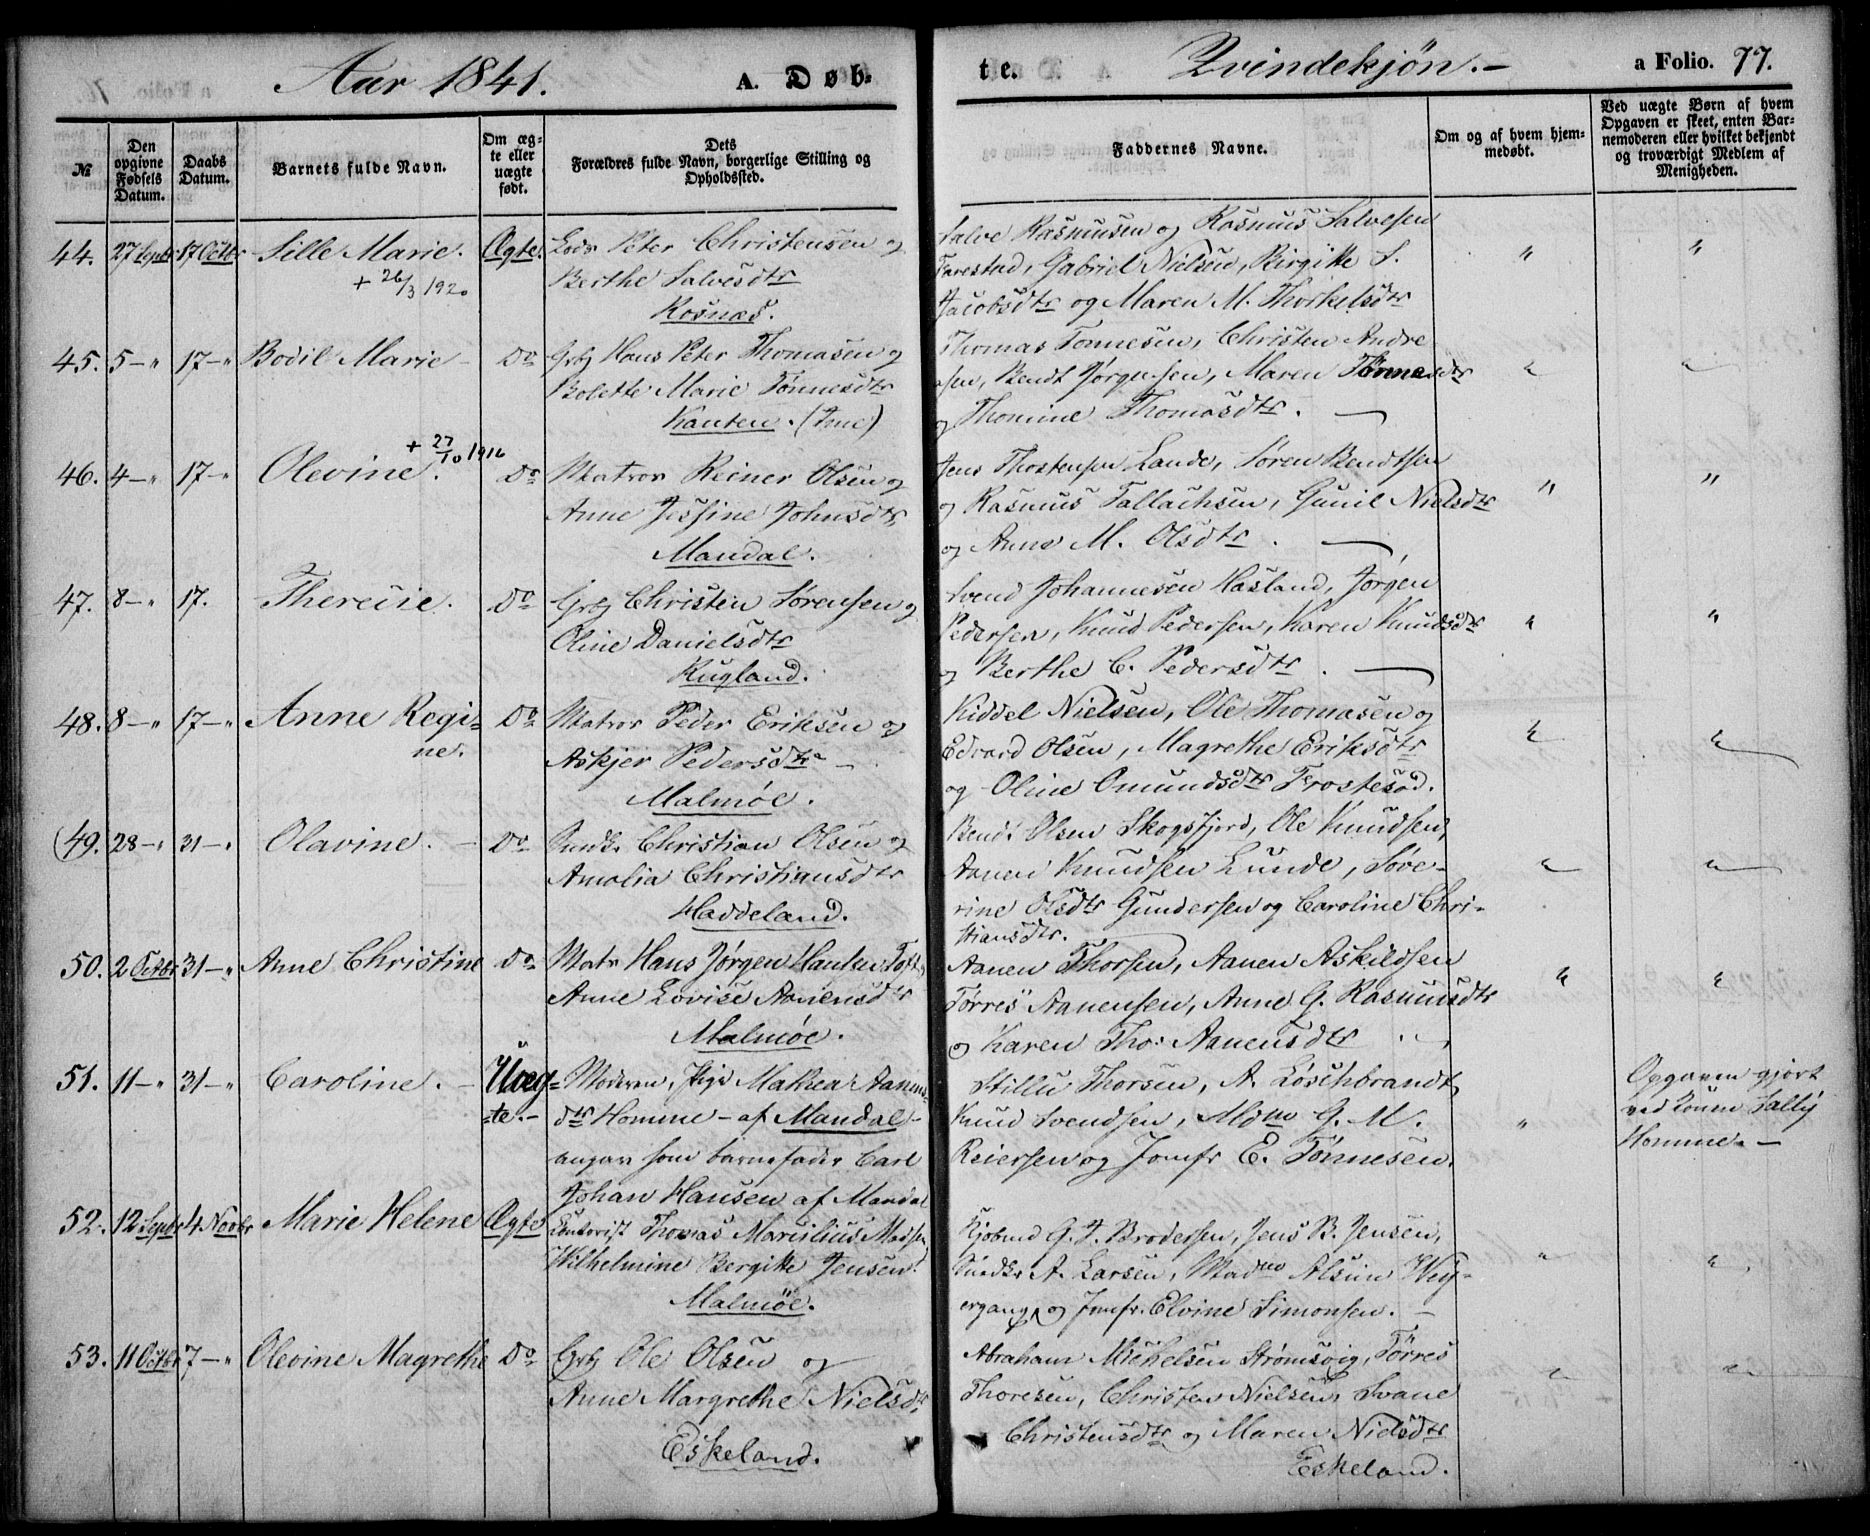 Aar 1841. A. Døb-
te. Qvindekjøn.- a Folio. 77.
№ Den opgivne Fødsels Datum. Daabs Datum. Barnets fulde Navn. Om ægte eller uægte født. Dets Forældres fulde Navn, borgerlige Stilling og Opholdssted.
Faddernes Navne. Om og af hvem hjemmedøbt. Ved uægte Børn af hvem Opgaven er skeet, enten Barnemoderen eller hvilket bekjendt og troværdigt Medlem af Menigheden.
44. 27 Septr 17 Octbr Sille Marie. Ægte. Lods Peter Christensen og
+ 26/3 1920 Berthe Salvesdtr
Rosnæs.
Salve Rasmusen og Rasmus Salvesen
Farestad, Gabriel Nielsen, Birgitte S.
Jacobsdtr og Maren M. Thorkelsdtr
45. 5 - " 17 - " Bodil Marie - Do Grbj Hans Peter Thomasen og
Bolette Marie Tønnesdtr
Kanten. (Ime)
Thomas Tønnesen, Christen Andre
asen, Bendt Jørgensen, Maren Tønnesdtr
og Thomine Thomasdtr. -
46. 4 - " 17 - " Olevine. + 27/10 1916 Do Matros Reiner Olsen og
Anne Jessine Johnsdtr
Mandal.
Jens Thostensen Lande, Søren Bendtsen
og Rasmus Tallachsen, Gunil Nielsdtr
og Anne M. Olsdtr. -
47. 8 - " 17. Therecie. Do Grbj Christen Sørensen og
Oline Danielsdtr
Rugland.
Svend Johannesen Hasland, Jørgen
Pedersen, Knud Pedersen, Karen Knudsdtr
og Berthe C. Pedersdtr. -
48. 8 - " 17 - " Anne Regi=
ne. Do Matros Peder Eriksen og
Askjer Pedersdtr -
Malmøe.
Kiddel Nielsen, Ole Thomasen og
Edvard Olsen, Magrethe Eriksdtr
og Oline Omundsdtr Frostesød.
(49. 28 - " 31 - " Olavine. - Do Snedk. Christian Olsen og
Amalia Christiansdtr
Haddeland.
Bendt Olsen Skogsfjord, Ole Knudsen,
Aanen Knudsen Lunde, Søve-
rine Olsdtr Gundersen og Caroline Chri-
stiansdtr.
50. 2 Octbr 31 - " Anne Christine Do Matr Hans Jørgen Hansen Toft og
Anne Lovise Aanensdtr
Malmøe.
Aanen Thorsen, Aanen Askildsen
Tørres Aanensen, Anne G. Rasmusdtr
og Karen Tho: Aanensdtr
51. 11 - " 31 - " Caroline. - Uæg=
te. - Moderen, Pige Mathea Aanens=
dtr Homme - af Mandal -
angav som barnefader Carl
Johan Hansen af Mandal
Stillu Thorsen, A. Løschbrandt,
Knud Svendsen, Mdm G. M.
Reiersen og Jomfr E. Tønnesen.
Opgaven gjort
ved Konen Sally
Homme. -
52. 12 Septr 4 Novbr Marie Helene Ægte Contorist Thomas Marcilius Madsen
Wilhelmine Bergitte Jensen
Malmøe.
Kjøbmd G. F. Brodersen, Jens B. Jensen,
Snedkr A. Larsen, Madm Alsine Wey-
ergang og Jomfr. Elvine Simonsen. -
53. 11 Octbr 7 - " Olevine Magrethe Do Grbj Ole Olsen og
Anne Margrethe Nielsdtr
Eskeland.
Abraham Michelsen Strømsvig, Tørres
Thoresen, Christen Nielsen, Svane
Christensdtr og Maren Nielsdtr
Eskeland.